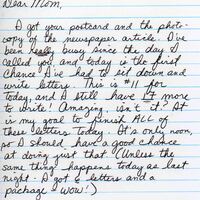 Dear Mom,
I got your postcard and the photo-
copy of the newspaper article. I've
been really busy since the day I
called you and today is the first
chance I've had to sit down and
write letters. This is #11 for
today, and I still have 17 more
to write! Amazing, isn't it? It
is my goal to finish ALL of
these letters today. It's only noon,
so I should have a good chance
at doing just that (Unless the
same thing happens today as last
night. I got 6 letters and a
package - WOW!)